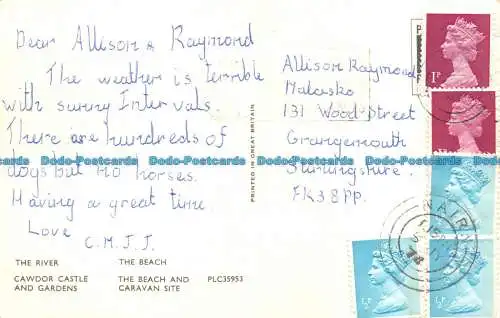 Dear Allison & Raymond
The weather is terrible
with sunny Intervals.
There are hundreds of
dogs but no horses.
Having a great time
Love
C.M.J.J.
THE RIVER
THE BEACH
CAWDOR CASTLE
AND GARDENS
THE BEACH AND
CARAVAN SITE
PLC35953
PRINTED IN GREAT BRITAIN
Allison Raymond
Malasko
131 Wood Street
Grangemouth
Stirlingshire.
FK3 8PP.
1P
½P
½P
NAIRN
Dodo-Postcards Dodo-Postcards Dodo-Postcards Dodo-Postcards Dodo-Postcards